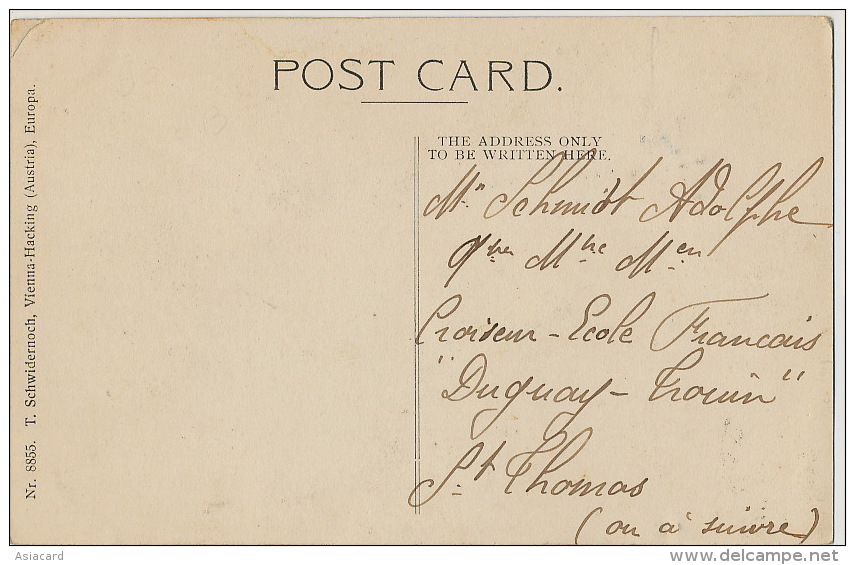 POST CARD.
THE ADDRESS ONLY
TO BE WRITTEN HERE.
Mr Schmidt Adolphe
Qer Mtre Men
Croiseur - Ecole Francais
"Duguay - Trouin"
St Thomas
(ou à suivre)
Nr. 8855. T. Schwidernoch, Vienna-Hacking (Austria), Europa.
Asiacard
delcampe.net